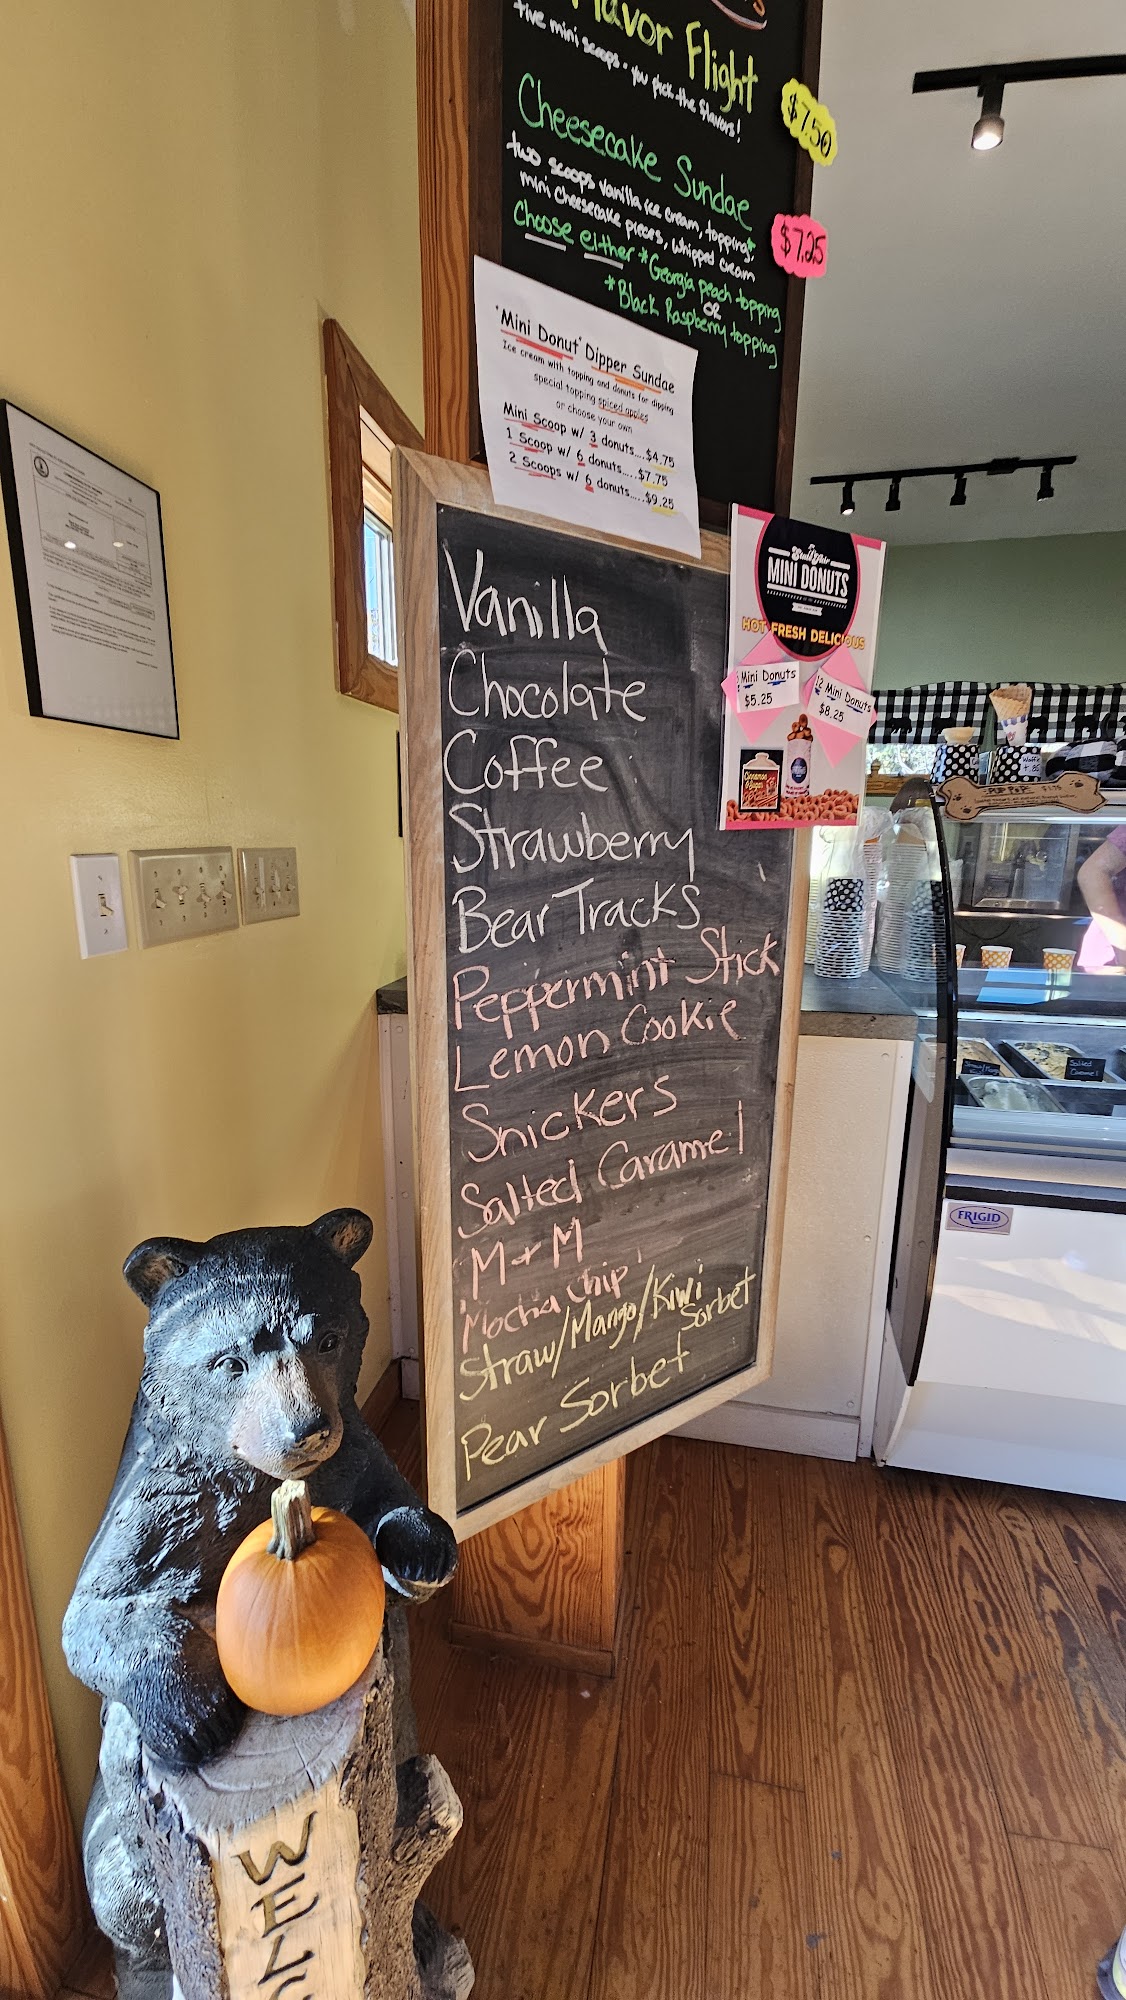 Flavor Flight
five mini scoops - you pick the flavors!
$7.50
Cheesecake Sundae
two scoops vanilla ice cream, topping,
mini cheesecake pieces, whipped cream
Choose either *Georgia peach topping
OR
*Black Raspberry topping
$7.25
"Mini Donut" Dipper Sundae
Ice cream with topping and donuts for dipping
special topping spiced apples
or choose your own
Mini Scoop w/ 3 donuts....$4.75
1 Scoop w/ 6 donuts.....$7.75
2 Scoops w/ 6 donuts.....$9.25
State Fair
MINI DONUTS
HOT FRESH DELICIOUS
Mini Donuts
$5.25
12 Mini Donuts
$8.25
Cinnamon
Vanilla
Chocolate
Coffee
Strawberry
Bear Tracks
Peppermint Stick
Lemon Cookie
Snickers
Salted Caramel
M + M
Mocha Chip
Straw/Mango/Kiwi
Sorbet
Pear Sorbet
Waffle
PUP POPS
Salted
Caramel
FRIGID
WELC